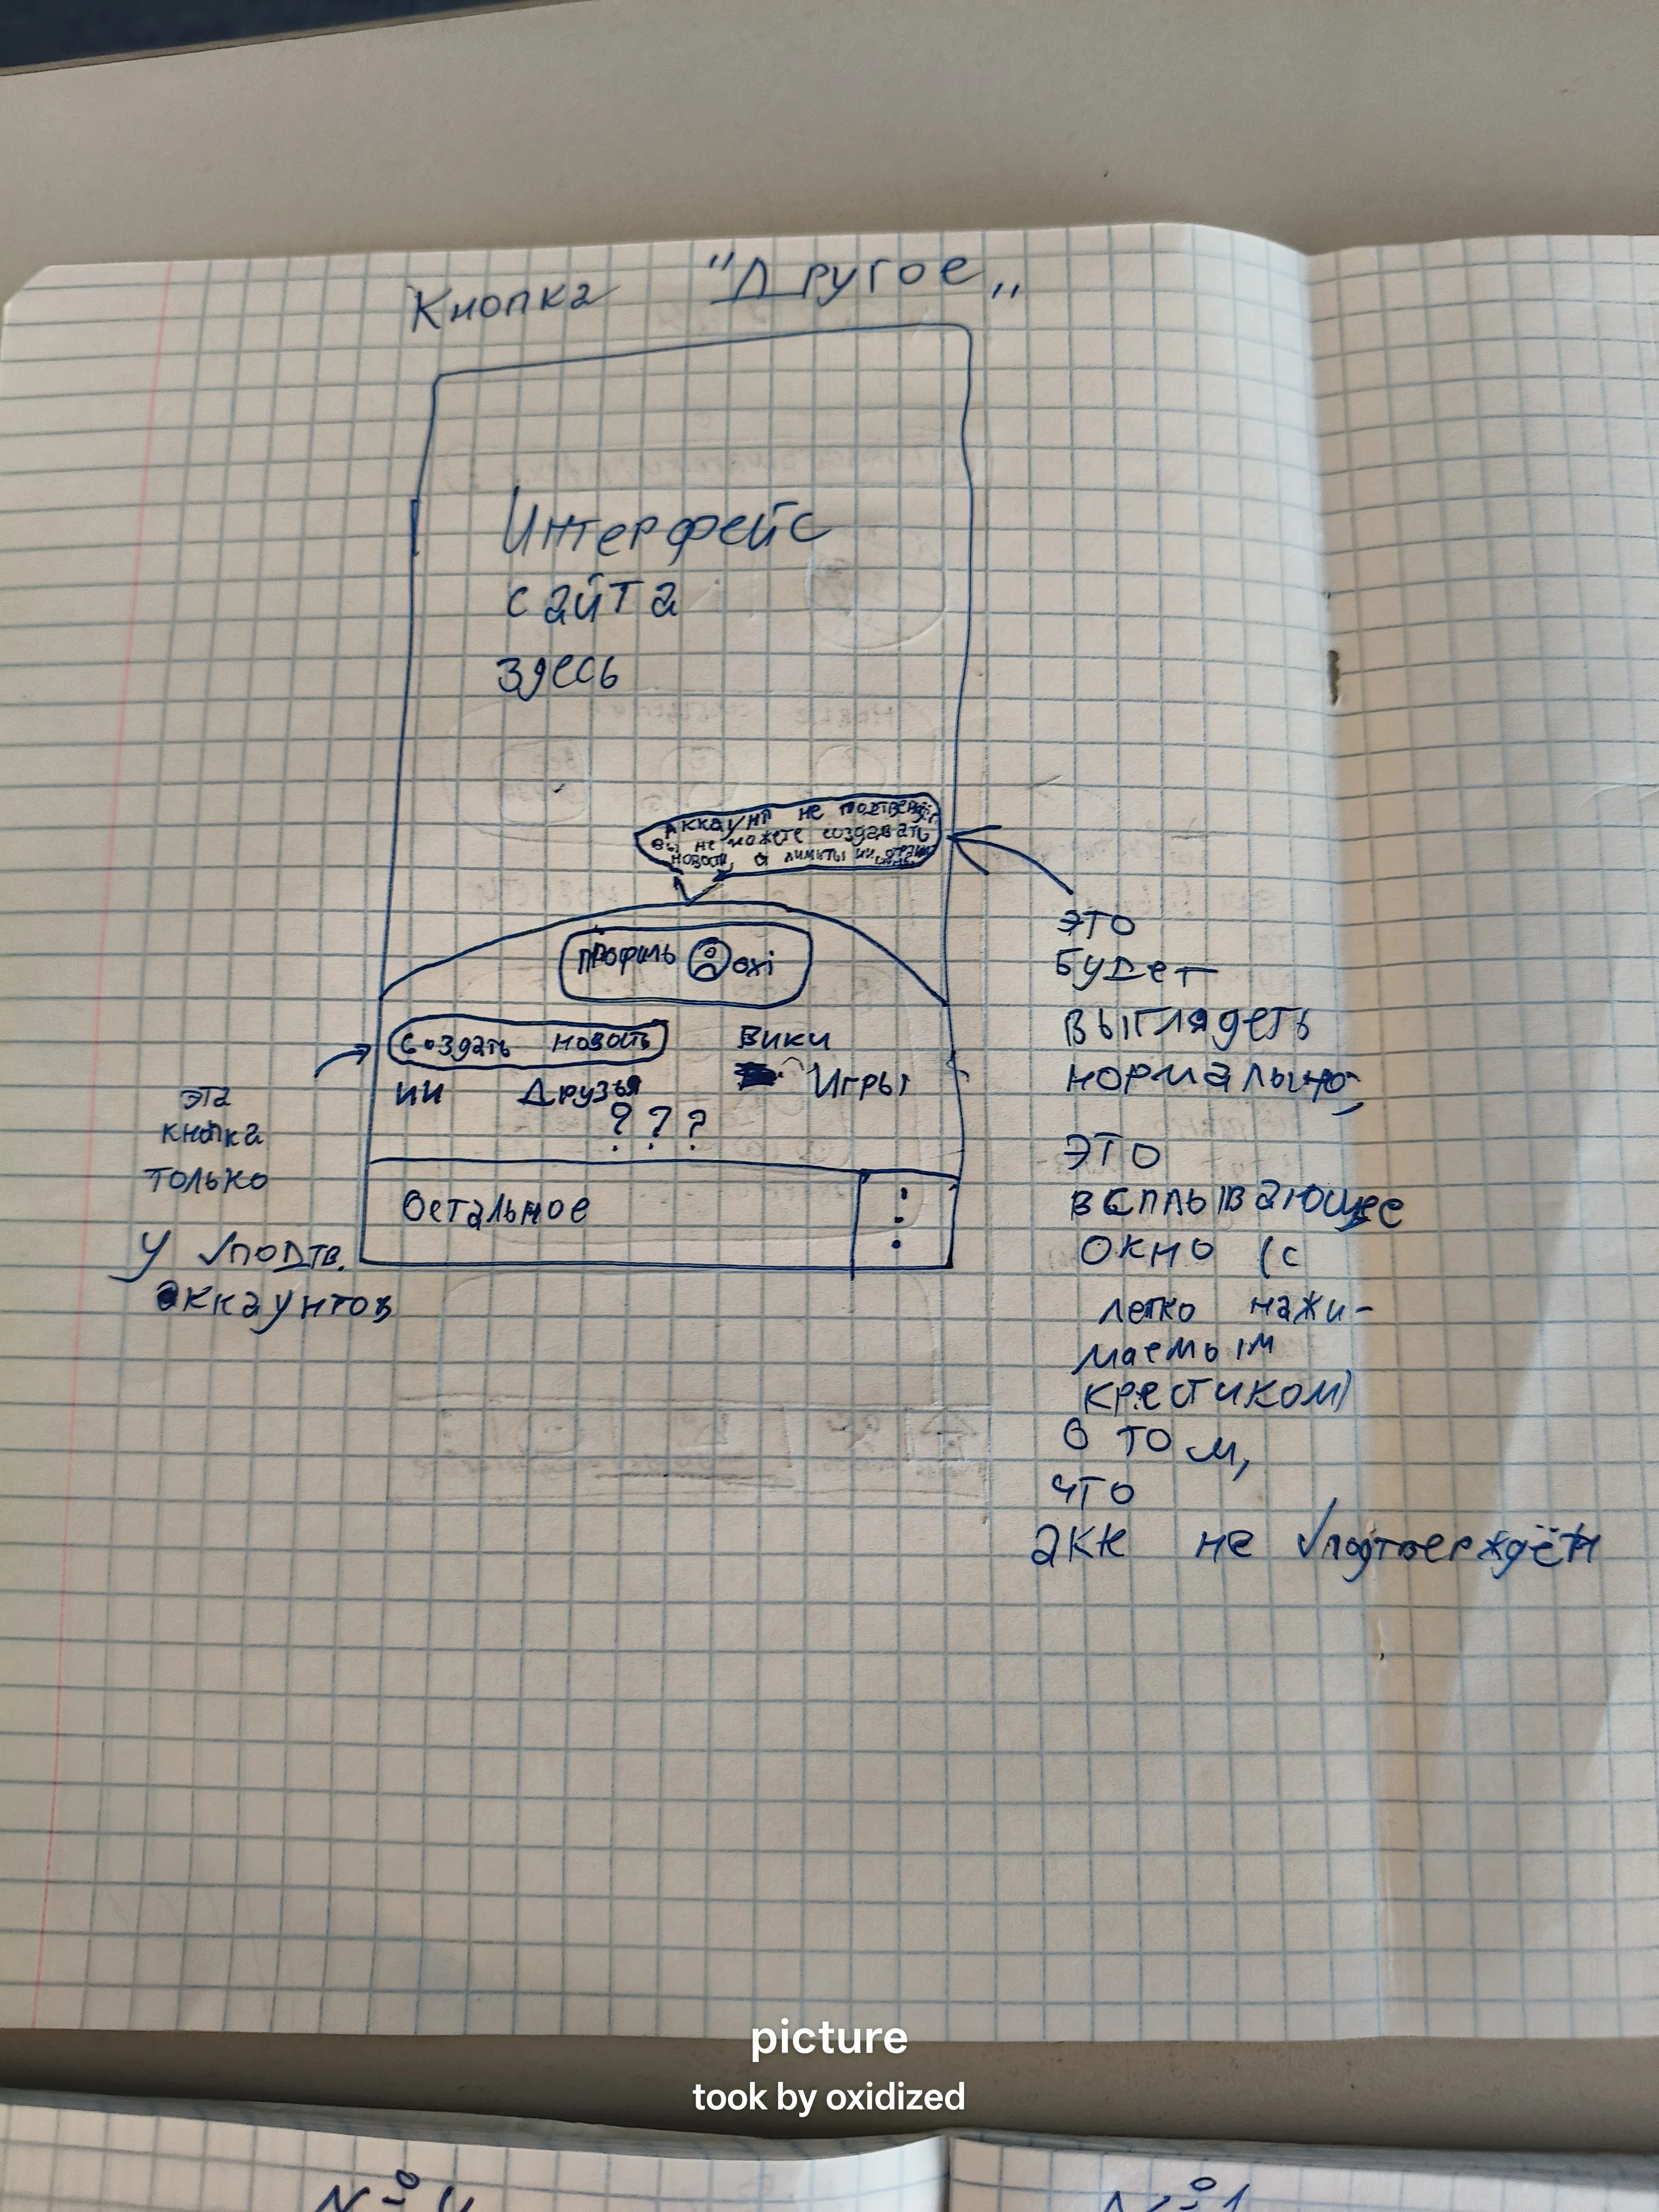 Кнопка "Другое„
Интерфейс
сайта
здесь
Аккаунт не подтверждён
вы не можете создавать
новости, а лимиты ии
профиль oxi
Создать новость Вики
ии Друзья Игры
? ? ?
Остальное
эта
кнопка
только
у √подтв.
аккаунтов
это
будет
выглядеть
нормально,
это
всплывающее
окно (с
легко нажи-
маемым
крестиком)
о том,
что
акк не √подтверждён
picture
took by oxidized